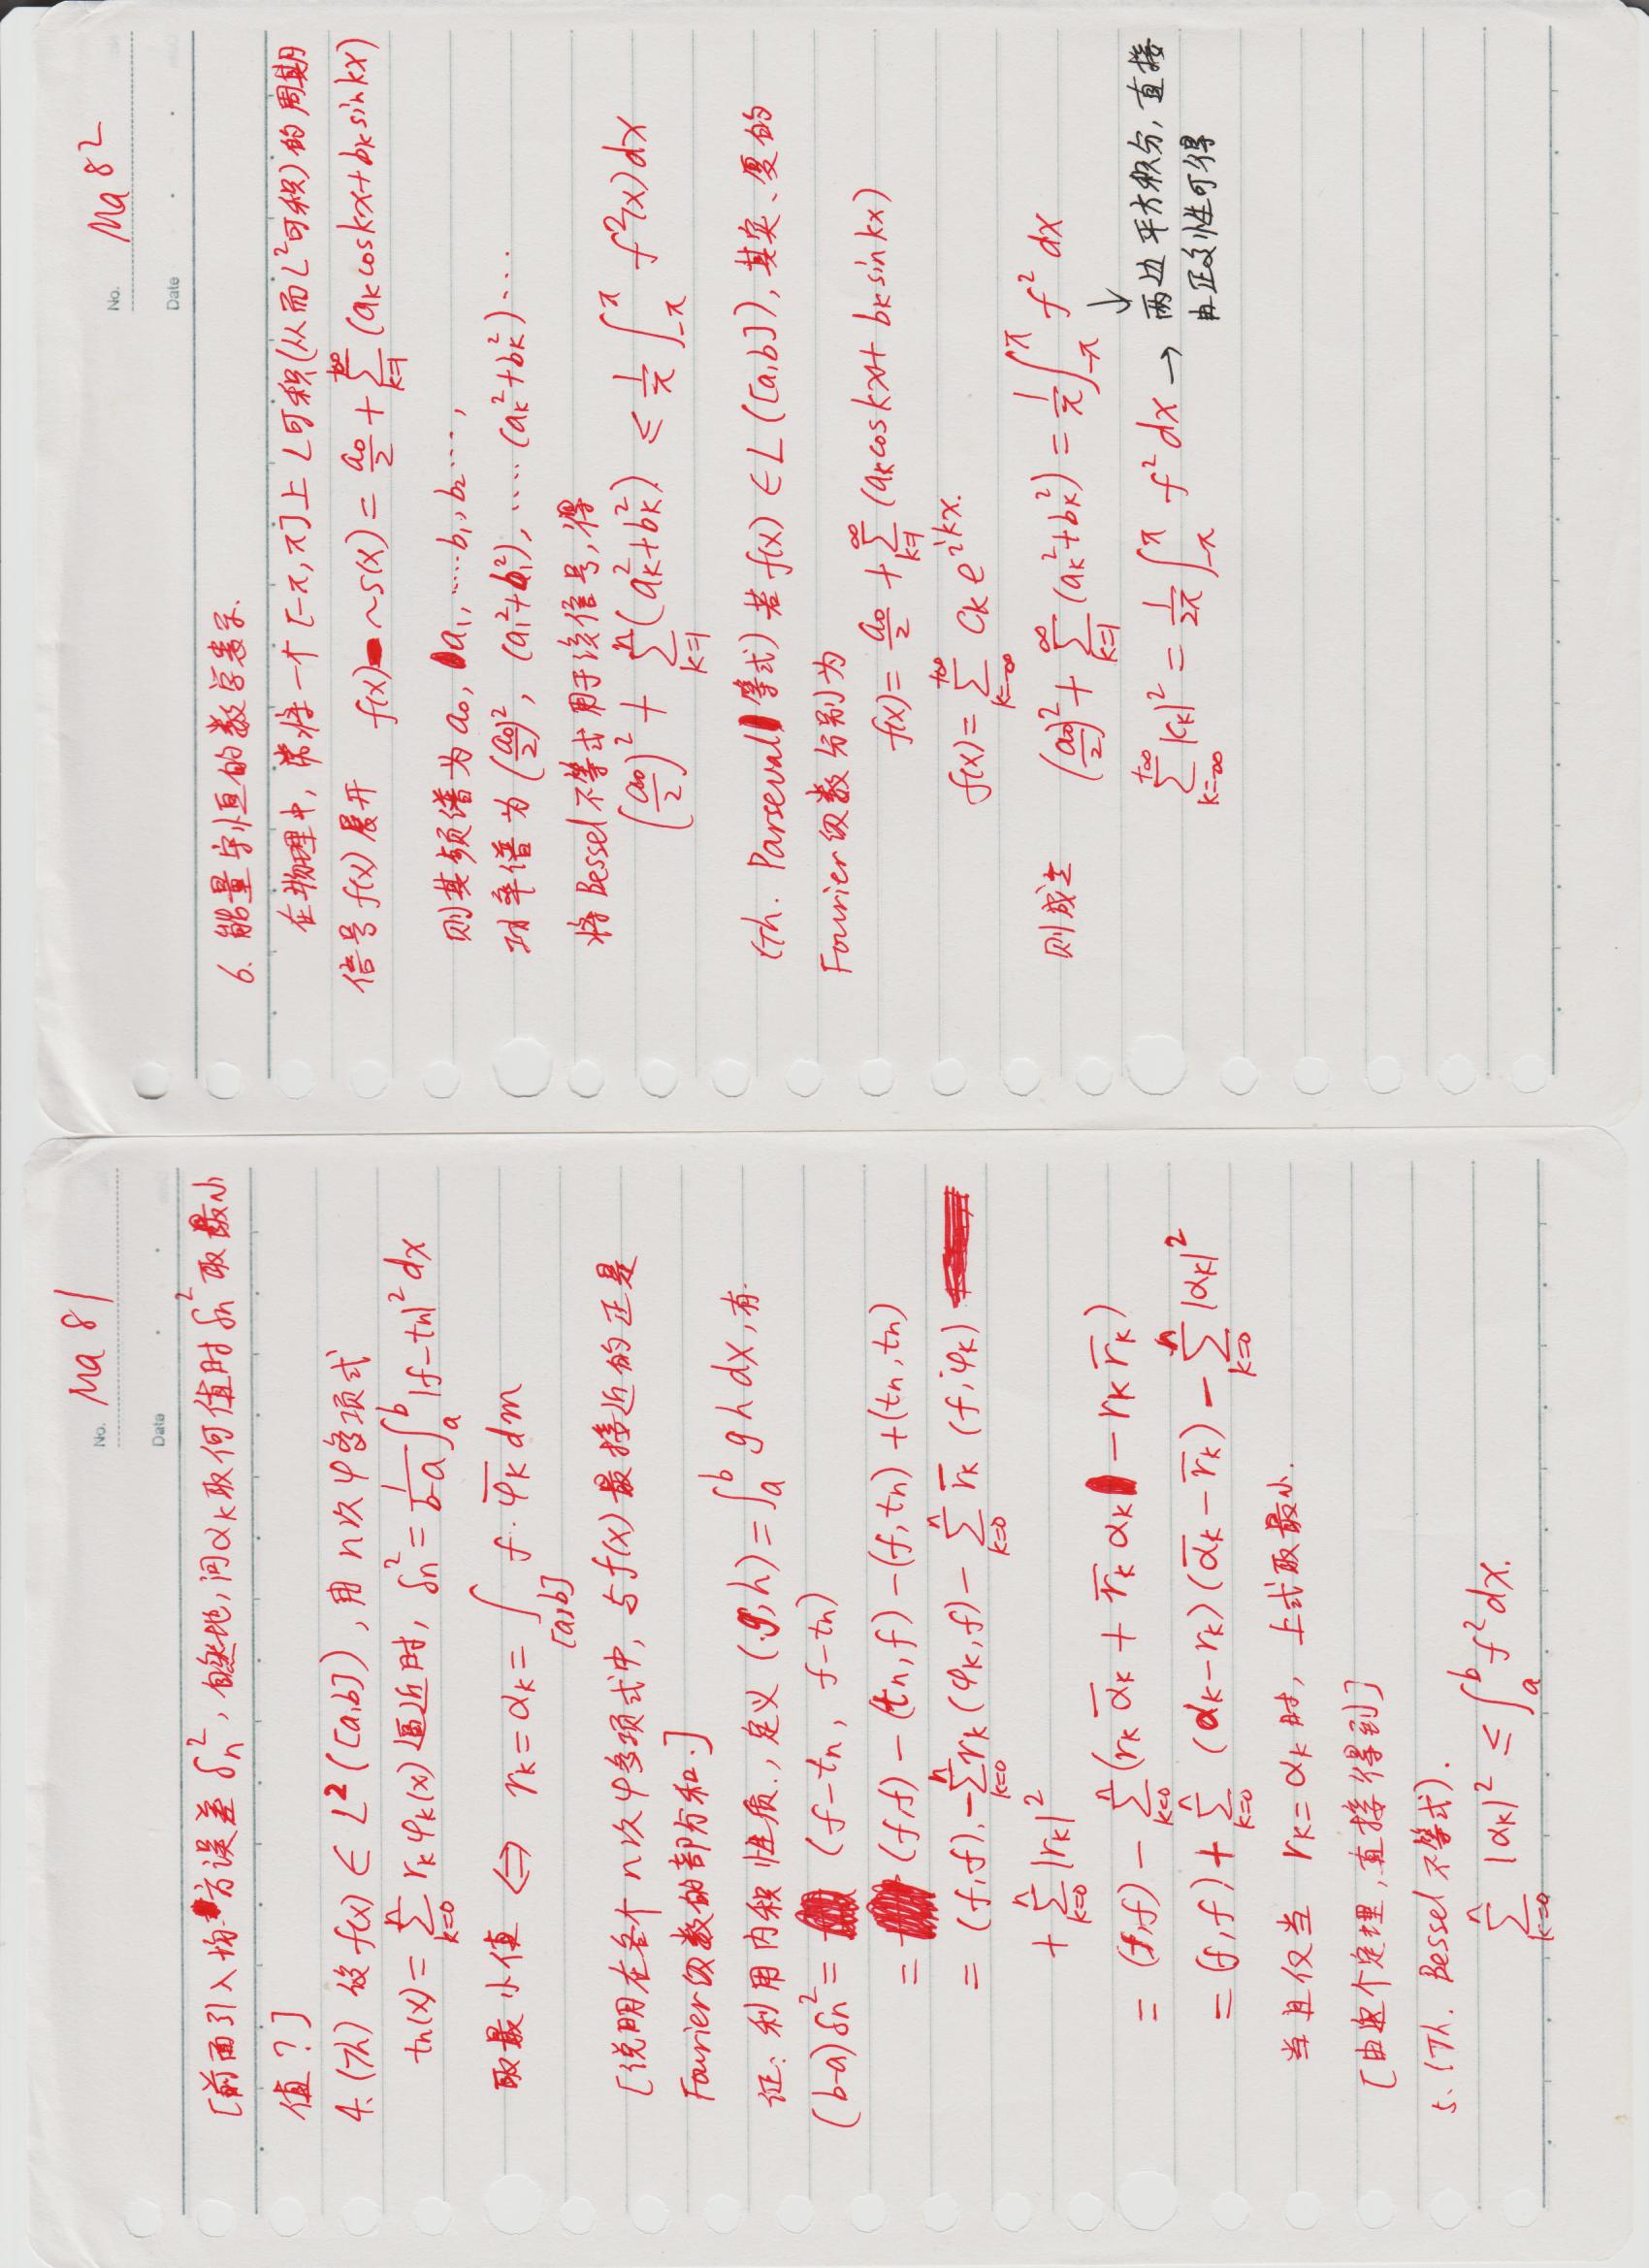 No. Ma 81
Date
[前面引入均方误差 δn², 自然地, 问 αk 取何值时 δn² 取最小
值?]
4. (Th) 设 f(x) ∈ L²([a,b]), 用 n次φ多项式
tn(x) = ∑_{k=0}^{n} rk φk(x) 逼近时, δn² = 1/(b-a) ∫_a^b |f-tn|² dx
取最小值 ⇔ rk = αk = ∫_{[a,b]} f·φ̅k dm
[说明在各个 n次φ多项式中, 与f(x) 最接近的正是
Fourier级数的部分和.]
证: 利用内积性质., 定义 (g,h) = ∫_a^b g h dx, 有.
(b-a) δn² = (f-tn, f-tn)
= (f,f) - (tn,f) - (f,tn) + (tn,tn)
= (f,f) - ∑_{k=0}^{n} rk (φk,f) - ∑_{k=0}^{n} r̅k (f,φk)
+ ∑_{k=0}^{n} |rk|²
= (f,f) - ∑_{k=0}^{n} (rk α̅k + r̅k αk - rk r̅k)
= (f,f) + ∑_{k=0}^{n} (αk-rk)(α̅k-r̅k) - ∑_{k=0}^{n} |αk|²
当且仅当 rk = αk 时, 上式取最小.
[由这个定理, 直接得到]
5. (Th. Bessel 不等式).
∑_{k=0}^{n} |αk|² ≤ ∫_a^b f² dx.
No. Ma 82
Date
6. 能量守恒的数学表示.
在物理中, 常将一个 [-π,π]上 L可积(从而L²可积)的周期
信号 f(x) 展开 f(x) ~ S(x) = a0/2 + ∑_{k=1}^{+∞} (ak cos kx + bk sin kx)
则其频谱为 a0, a1, ····· b1, b2 ····,
功率谱为 (a0/2)², (a1²+b1²), ···· (ak²+bk²) ···
将 Bessel 不等式用于该信号, 得
(a0/2)² + ∑_{k=1}^{n} (ak²+bk²) ≤ 1/π ∫_{-π}^{π} f²(x) dx
(Th. Parseval 等式) 若 f(x) ∈ L([a,b]), 其实、复的
Fourier级数分别为
f(x) = a0/2 + ∑_{k=1}^{∞} (ak cos kx + bk sin kx)
f(x) = ∑_{k=-∞}^{+∞} ck e^{ikx}.
则成立 (a0/2)² + ∑_{k=1}^{∞} (ak²+bk²) = 1/π ∫_{-π}^{π} f² dx
↓
∑_{k=-∞}^{+∞} |ck|² = 1/2π ∫_{-π}^{π} f² dx → 两边平方积分, 直接
由正交性可得